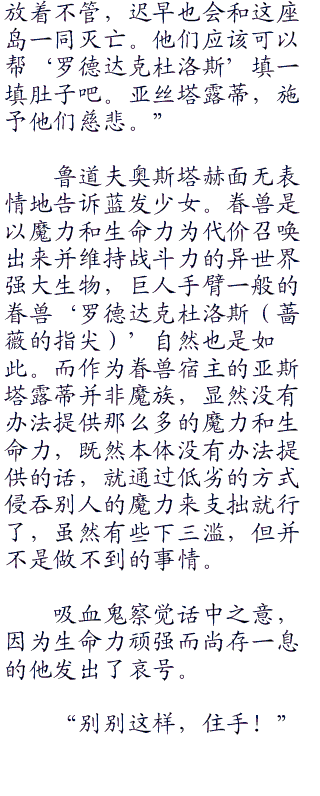 放着不管，迟早也会和这座
岛一同灭亡。他们应该可以
帮‘罗德达克杜洛斯’填一
填肚子吧。亚丝塔露蒂，施
予他们慈悲。”
鲁道夫奥斯塔赫面无表
情地告诉蓝发少女。眷兽是
以魔力和生命力为代价召唤
出来并维持战斗力的异世界
强大生物，巨人手臂一般的
眷兽‘罗德达克杜洛斯（蔷
薇的指尖）’自然也是如
此。而作为眷兽宿主的亚斯
塔露蒂并非魔族，显然没有
办法提供那么多的魔力和生
命力，既然本体没有办法提
供的话，就通过低劣的方式
侵吞别人的魔力来支拙就行
了，虽然有些下三滥，但并
不是做不到的事情。
吸血鬼察觉话中之意，
因为生命力顽强而尚存一息
的他发出了哀号。
“别别这样，住手！”